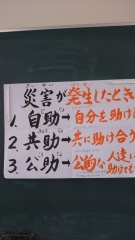 災害が発生したとき
1. 自助→自分を助ける
2. 共助→共に助け合う
3. 公助→公的な人達に助けても